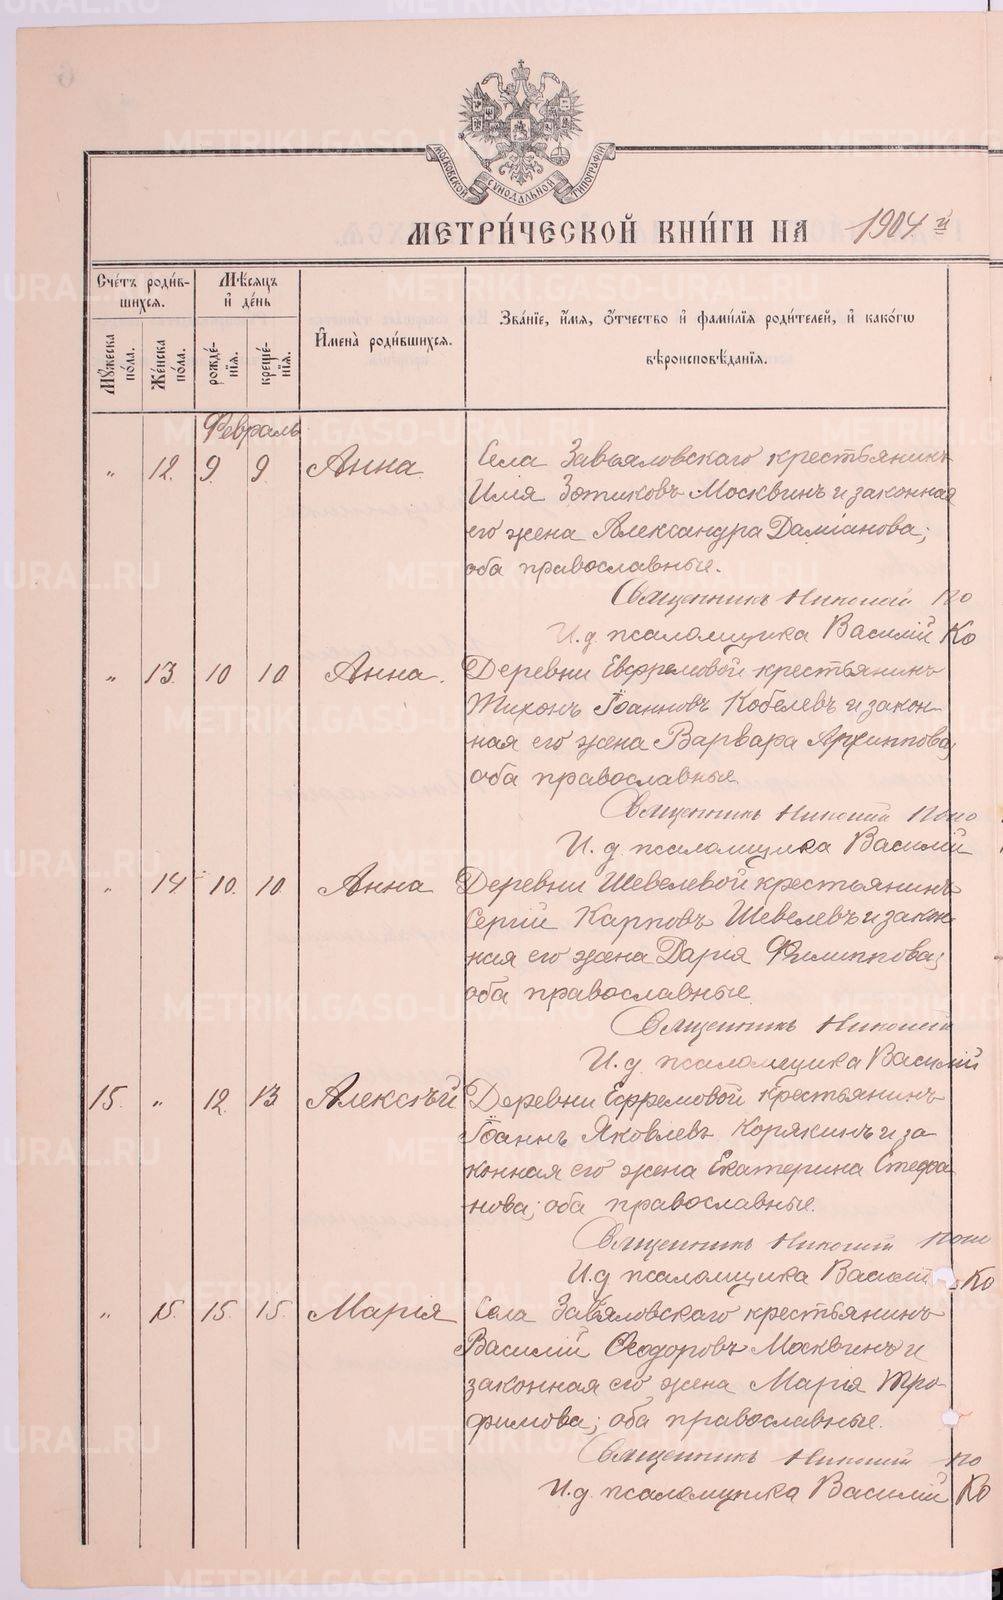 МОСКОВСКОЙ СѴНОДАЛЬНОЙ ТИПОГРАФІИ
МЕТРИ́ЧЕСКОЙ КНИ́ГИ НА 1904 й
Сче́тъ роди́в-
шихсѧ.
Мѣ́сѧцъ
и҆ де́нь
Мꙋ́жеска
по́ла.
Же́нска
по́ла.
рожде́-
нїѧ.
креще́-
нїѧ.
И҆мена̀ роди́вшихсѧ.
Зва́нїе, и҆́мѧ, ѻ҆́тчество и҆ фами́лїѧ роди́телей, и҆ како́гѡ
вѣроисповѣ́данїѧ.
Февраль
" 12. 9. 9. Анна Села Завьяловскаго крестьянинъ
Илія Зотиковъ Москвинъ и законная
его жена Александра Даміанова;
оба православные.
Священникъ Николай По
И. д. псаломщика Василій Ко
" 13. 10 10. Анна. Деревни Евфремовой крестьянинъ
Тихонъ Іоанновъ Кобелевъ и закон-
ная его жена Варвара Архиппова;
оба православные.
Священникъ Николай Попо
И. д. псаломщика Василій
" 14 10. 10. Анна Деревни Шевелевой крестьянинъ
Сергій Карповъ Шевелевъ и закон-
ная его жена Дарія Филиппова;
оба православные.
Священникъ Николай
И. д. псаломщика Василій
15. " 12. 13. Алексѣй Деревни Ефремовой крестьянинъ
Іоаннъ Яковлевъ Корякинъ и за-
конная его жена Екатерина Стефа-
нова; оба православные.
Священникъ Николай Попо
И. д. псаломщика Василій Ко
" 15. 15. 15. Марія Села Завьяловскаго крестьянинъ
Василій Ѳеодоровъ Москвинъ и
законная его жена Марія Тро-
фимова; оба православные.
Священникъ Николай По
И. д. псаломщика Василій Ко
METRIKI.GASO-URAL.RU